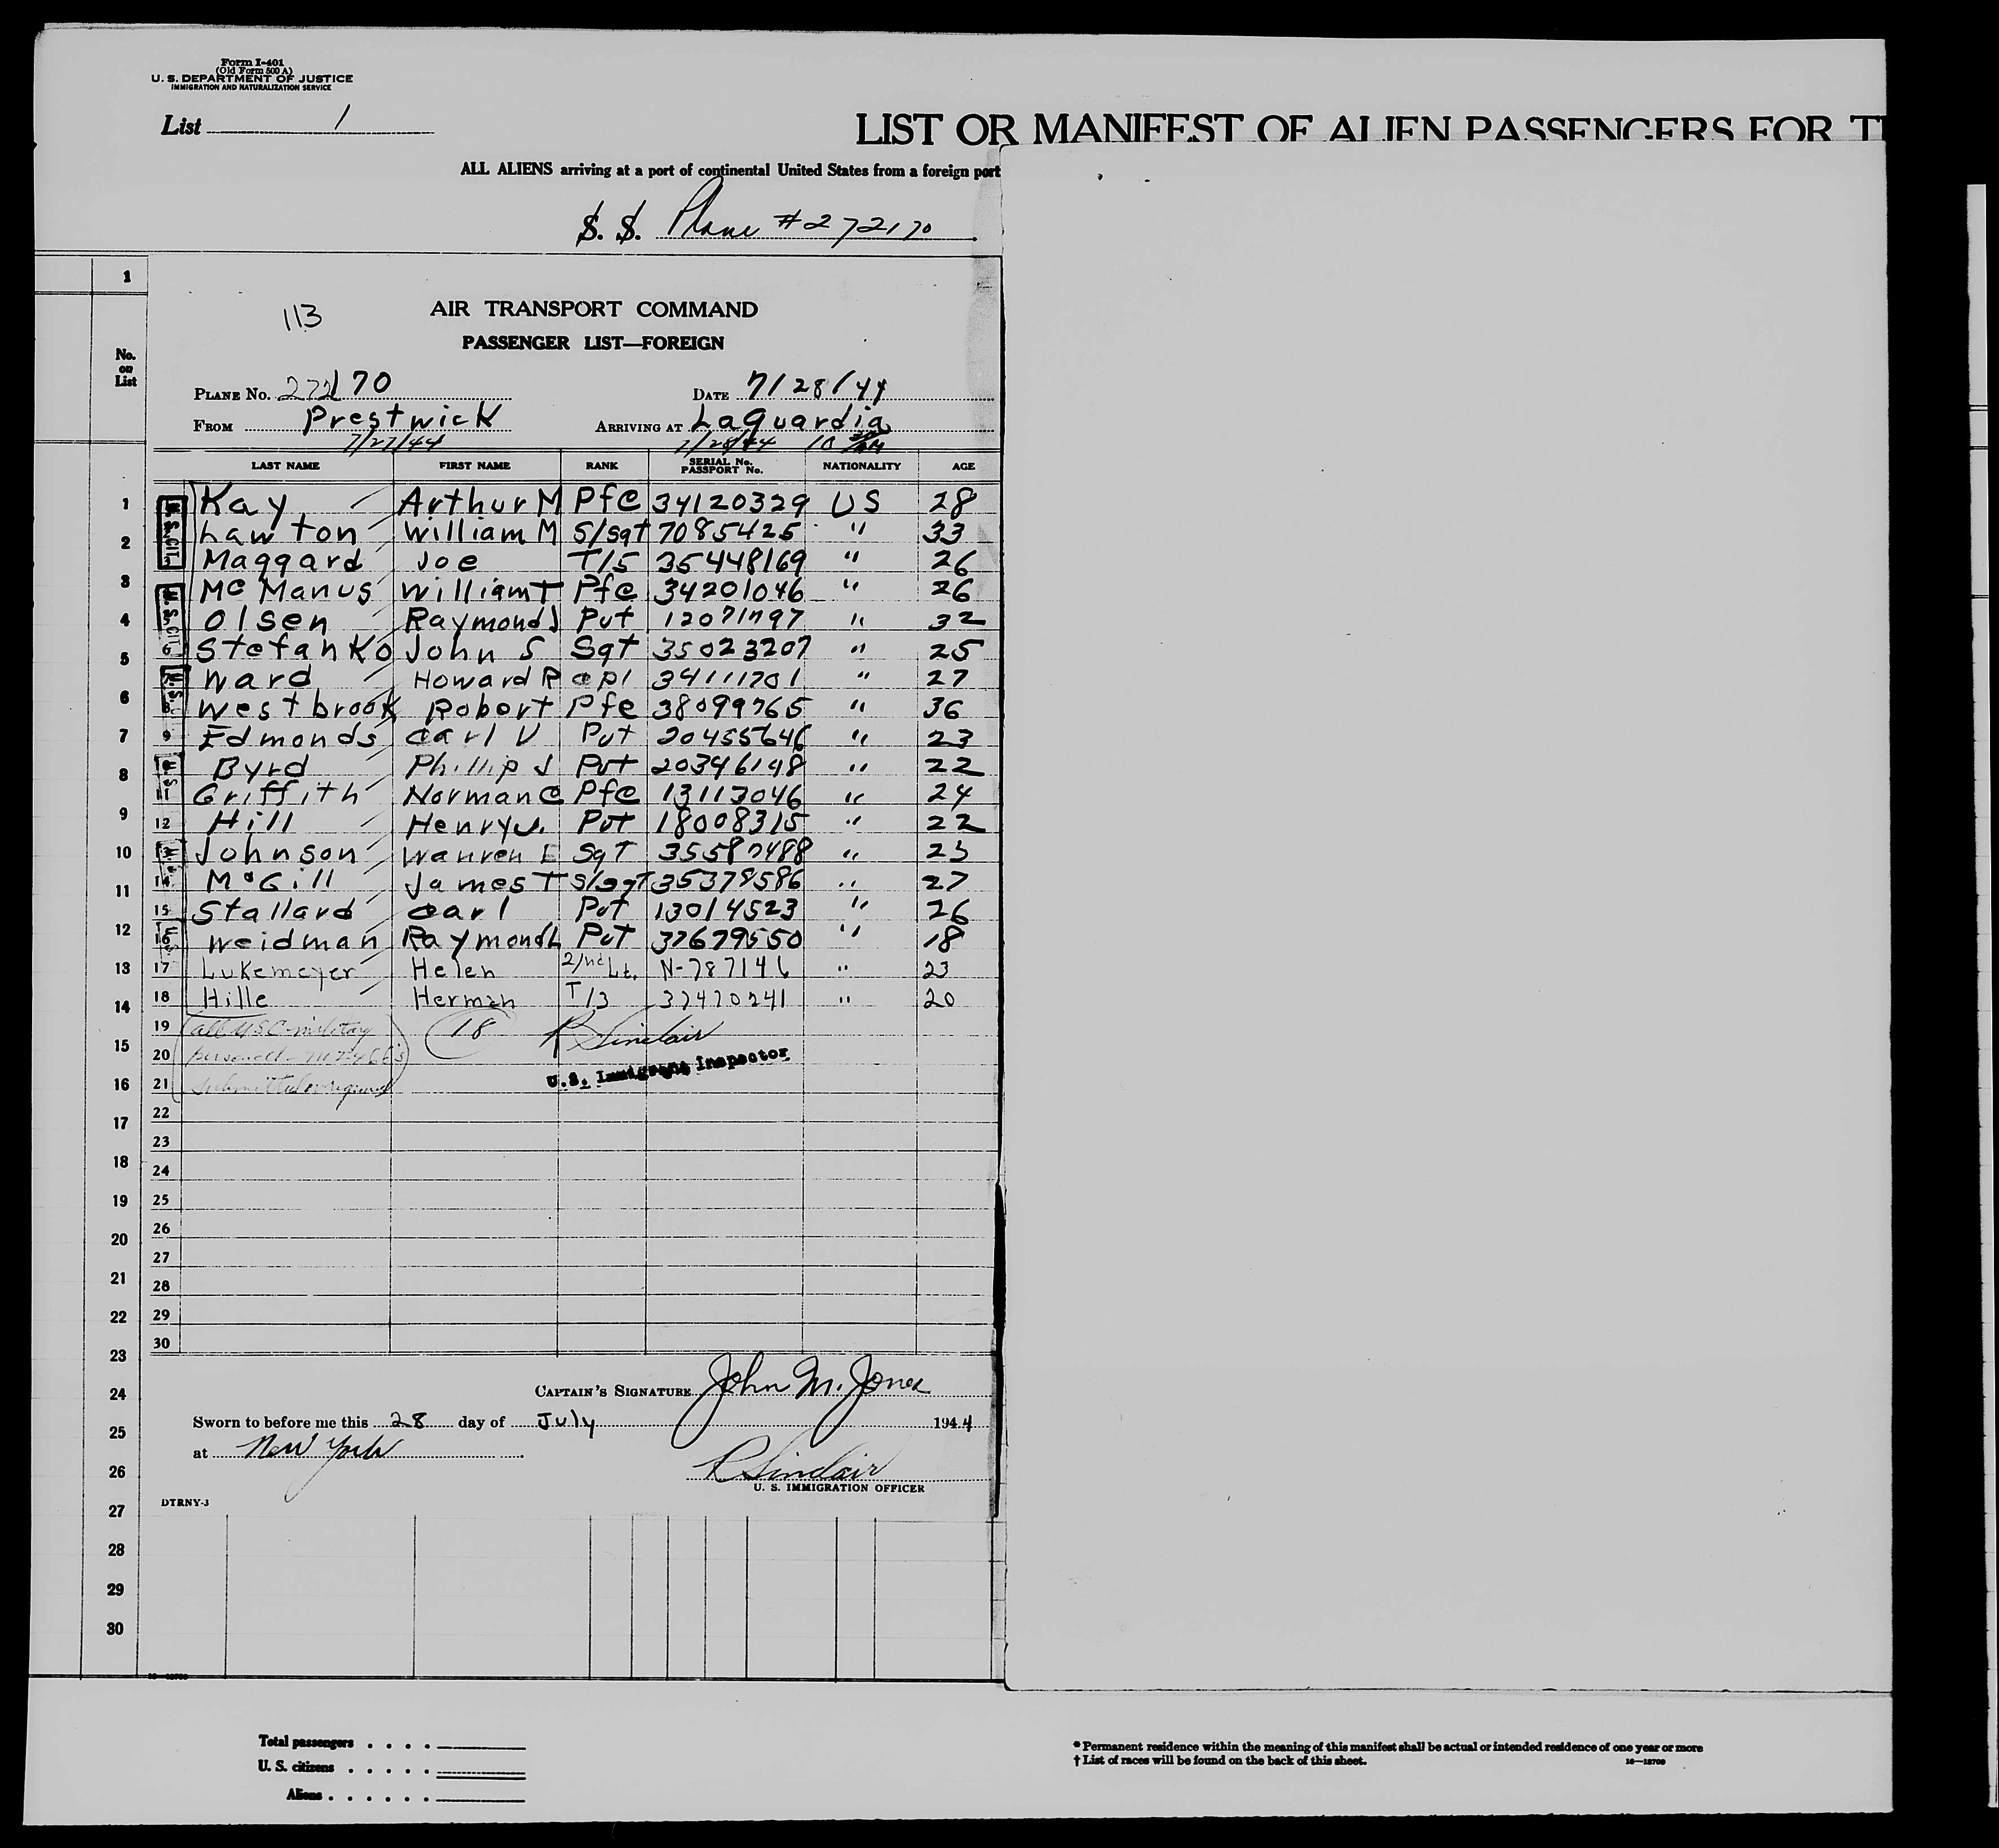 Form I-401
(Old Form 500 A)
U. S. DEPARTMENT OF JUSTICE
IMMIGRATION AND NATURALIZATION SERVICE
List 1
LIST OR MANIFEST OF ALIEN PASSENGERS FOR
ALL ALIENS arriving at a port of continental United States from a foreign port
S. S. Plane # 272170
113
AIR TRANSPORT COMMAND
PASSENGER LIST—FOREIGN
PLANE No. 272170 DATE 7/28/44
FROM Prestwick ARRIVING AT Laguardia
7/27/44 7/28/44 10 AM
No. on List
LAST NAME FIRST NAME RANK SERIAL No. PASSPORT No. NATIONALITY AGE
Kay Arthur M Pfc 34120329 US 28
Lawton William M S/Sgt 7085425 " 33
Maggard Joe T/5 35448169 " 26
McManus William T Pfc 34201046 " 26
Olsen Raymond J Pvt 12071797 " 32
Stefanko John S Sgt 35023207 " 25
Ward Howard R Cpl 34111701 " 27
Westbrook Robert Pfc 38099765 " 36
9 Edmonds Carl V Pvt 20455646 " 23
Byrd Phillip J Pvt 20346148 " 22
11 Griffith Norman C Pfc 13113046 " 24
12 Hill Henry J. Pvt 18008315 " 22
13 Johnson Warren E Sgt 35587488 " 23
14 McGill James T S/Sgt 35378586 " 27
15 Stallard Carl Pvt 13014523 " 26
16 Weidman Raymond L Pvt 37679550 " 18
17 Lukemeyer Helen 2/nd Lt. N-787146 " 23
18 Hille Herman T/3 37470241 " 20
19 all USC military 18 R Sinclair
20 personell
21 submitted U.S. Immigrant Inspector
22
23
24
25
26
27
28
29
30
CAPTAIN'S SIGNATURE John M. Jones
Sworn to before me this 28 day of July 1944
at New York
R Sinclair
U. S. IMMIGRATION OFFICER
DTRNY-3
Total passengers . . . .
U. S. citizens . . . . .
Aliens . . . . . .
* Permanent residence within the meaning of this manifest shall be actual or intended residence of one year or more
† List of races will be found on the back of this sheet.
16—12709